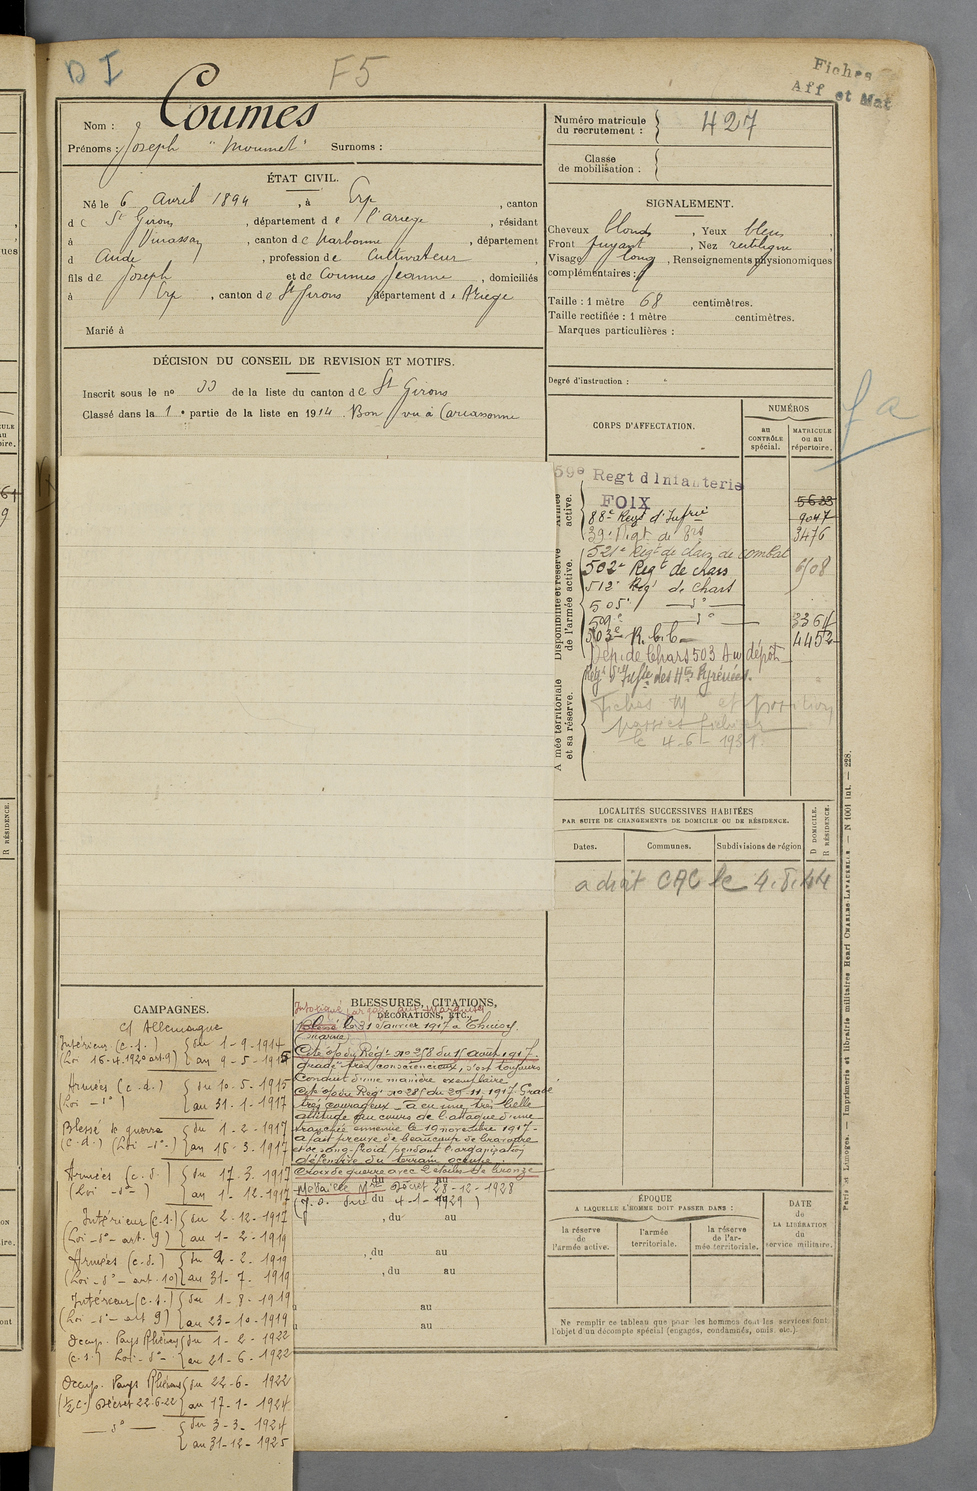 D I
F5
Fiches
Aff et Mat
Coumes
Nom :
Prénoms : Joseph "Moumet" Surnoms :
ÉTAT CIVIL.
Né le 6 avril 1894, à Erp, canton
de St Girons, département de l'Ariège, résidant
à Vinassan, canton de Narbonne, département
d Aude, profession de Cultivateur
fils de Joseph et de Coumes Jeanne, domiciliés
à Erp, canton de St Girons, département de Ariège
Marié à
DÉCISION DU CONSEIL DE REVISION ET MOTIFS.
Inscrit sous le no 33 de la liste du canton de St Girons
Classé dans la 1e partie de la liste en 1914 Bon vu à Carcassonne
Numéro matricule
du recrutement : 427
Classe
de mobilisation :
SIGNALEMENT.
Cheveux blonds, Yeux bleus
Front fuyant, Nez rectiligne
Visage long, Renseignements physionomiques
complémentaires :
Taille : 1 mètre 68 centimètres.
Taille rectifiée : 1 mètre centimètres.
Marques particulières :
Degré d'instruction :
CORPS D'AFFECTATION.
NUMÉROS
au
CONTRÔLE
spécial.
MATRICULE
ou au
répertoire.
Armée
active.
Disponibilité et réserve
de l'armée active.
Armée territoriale
et sa réserve.
59e Regt d'Infanterie
FOIX 5633
88e Regt d'Infrie 9047
3476
521e Regt de chars de combat
502e Regt de chars 6508
512e Regt de chars
505e d°
509e d° 3364
503e R.C.C. 4452
Dép. de Chars 503 Au dépôt
Regt d'Infie des Htes Pyrénées.
Fiches M et position
le 4-6-1931
LOCALITÉS SUCCESSIVES HABITÉES
PAR SUITE DE CHANGEMENTS DE DOMICILE OU DE RÉSIDENCE.
Dates. Communes. Subdivisions de région
D DOMICILE.
R RÉSIDENCE.
a droit CAC le 4.8.44
CAMPAGNES.
c/ Allemagne
Intérieur (c.s.) du 1-9-1914
(Loi 16-4-1920 art. 9) au 9-5-1915
Armées (c.d.) du 10-5-1915
(Loi -d°-) au 31-1-1917
Blessé de guerre du 1-2-1917
(c.d.) (Loi -d°-) au 16-3-1917
Armées (c.d.) du 17-3-1917
(Loi -d°-) au 1-12-1917
Intérieur (c.s.) du 2-12-1917
(Loi -d°- art. 9) au 1-2-1919
Armées (c.s.) du 2-2-1919
(Loi -d°- art. 10) au 31-7-1919
Intérieur (c.s.) du 1-8-1919
(Loi -d°- art 9) au 23-10-1919
Occup. Pays Rhénans du 1-2-1922
(c.s.) Loi -d°- au 21-6-1922
Occup. Pays Rhénans du 22-6-1922
(1/2 c.) Décret 22-6-22 au 17-1-1924
d° du 3-3-1924
au 31-12-1925
BLESSURES, CITATIONS,
DÉCORATIONS, ETC.
le 31 Janvier 1917 à
(Marne)
Cité o/ du Régt n° 258 du 15 août 1917.
gradé très consciencieux, s'est toujours
conduit d'une manière exemplaire
Cité o/ du Régt n° 285 du 29-11-1917. Gradé
très courageux – a eu une très belle
attitude au cours de l'attaque d'une
tranchée ennemie le 19 novembre 1917 –
a fait preuve de beaucoup de bravoure
et de sang-froid pendant l'organisation
défensive du terrain occupé.
Croix de guerre avec 2 étoiles de bronze
Médaille Mre Décret 28-12-1928
(J.O. du 4-1-1929)
, du au
, du au
, du au
au
au
ÉPOQUE
A LAQUELLE L'HOMME DOIT PASSER DANS :
la réserve
de
l'armée active.
l'armée
territoriale.
la réserve
de l'ar-
mée territoriale.
DATE
de
LA LIBÉRATION
du
service militaire.
Ne remplir ce tableau que pour les hommes dont les services font
l'objet d'un décompte spécial (engagés, condamnés, omis, etc.).
Paris et Limoges. — Imprimerie et librairie militaires Henri CHARLES-LAVAUZELLE. — N 1001 int. — 228.